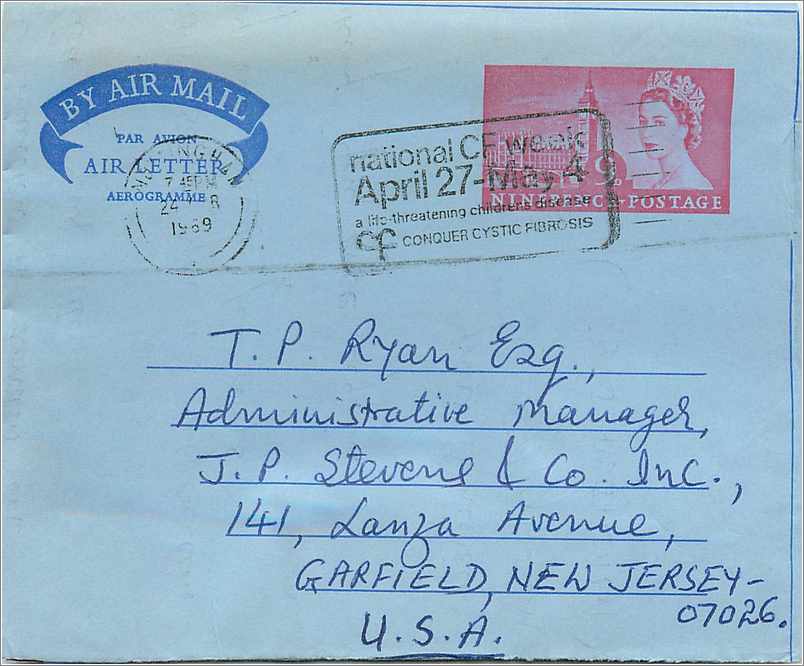 BY AIR MAIL
PAR AVION
AIR LETTER
AEROGRAMME
7 45 PM
24
1969
national CF week
April 27-May 4
a life-threatening children's disease
cf CONQUER CYSTIC FIBROSIS
9D
NINEPENCE POSTAGE
T. P. Ryan Esq.,
Administrative Manager,
J. P. Stevens & Co. Inc.,
141, Lanza Avenue,
GARFIELD, NEW JERSEY-
07026.
U.S.A.